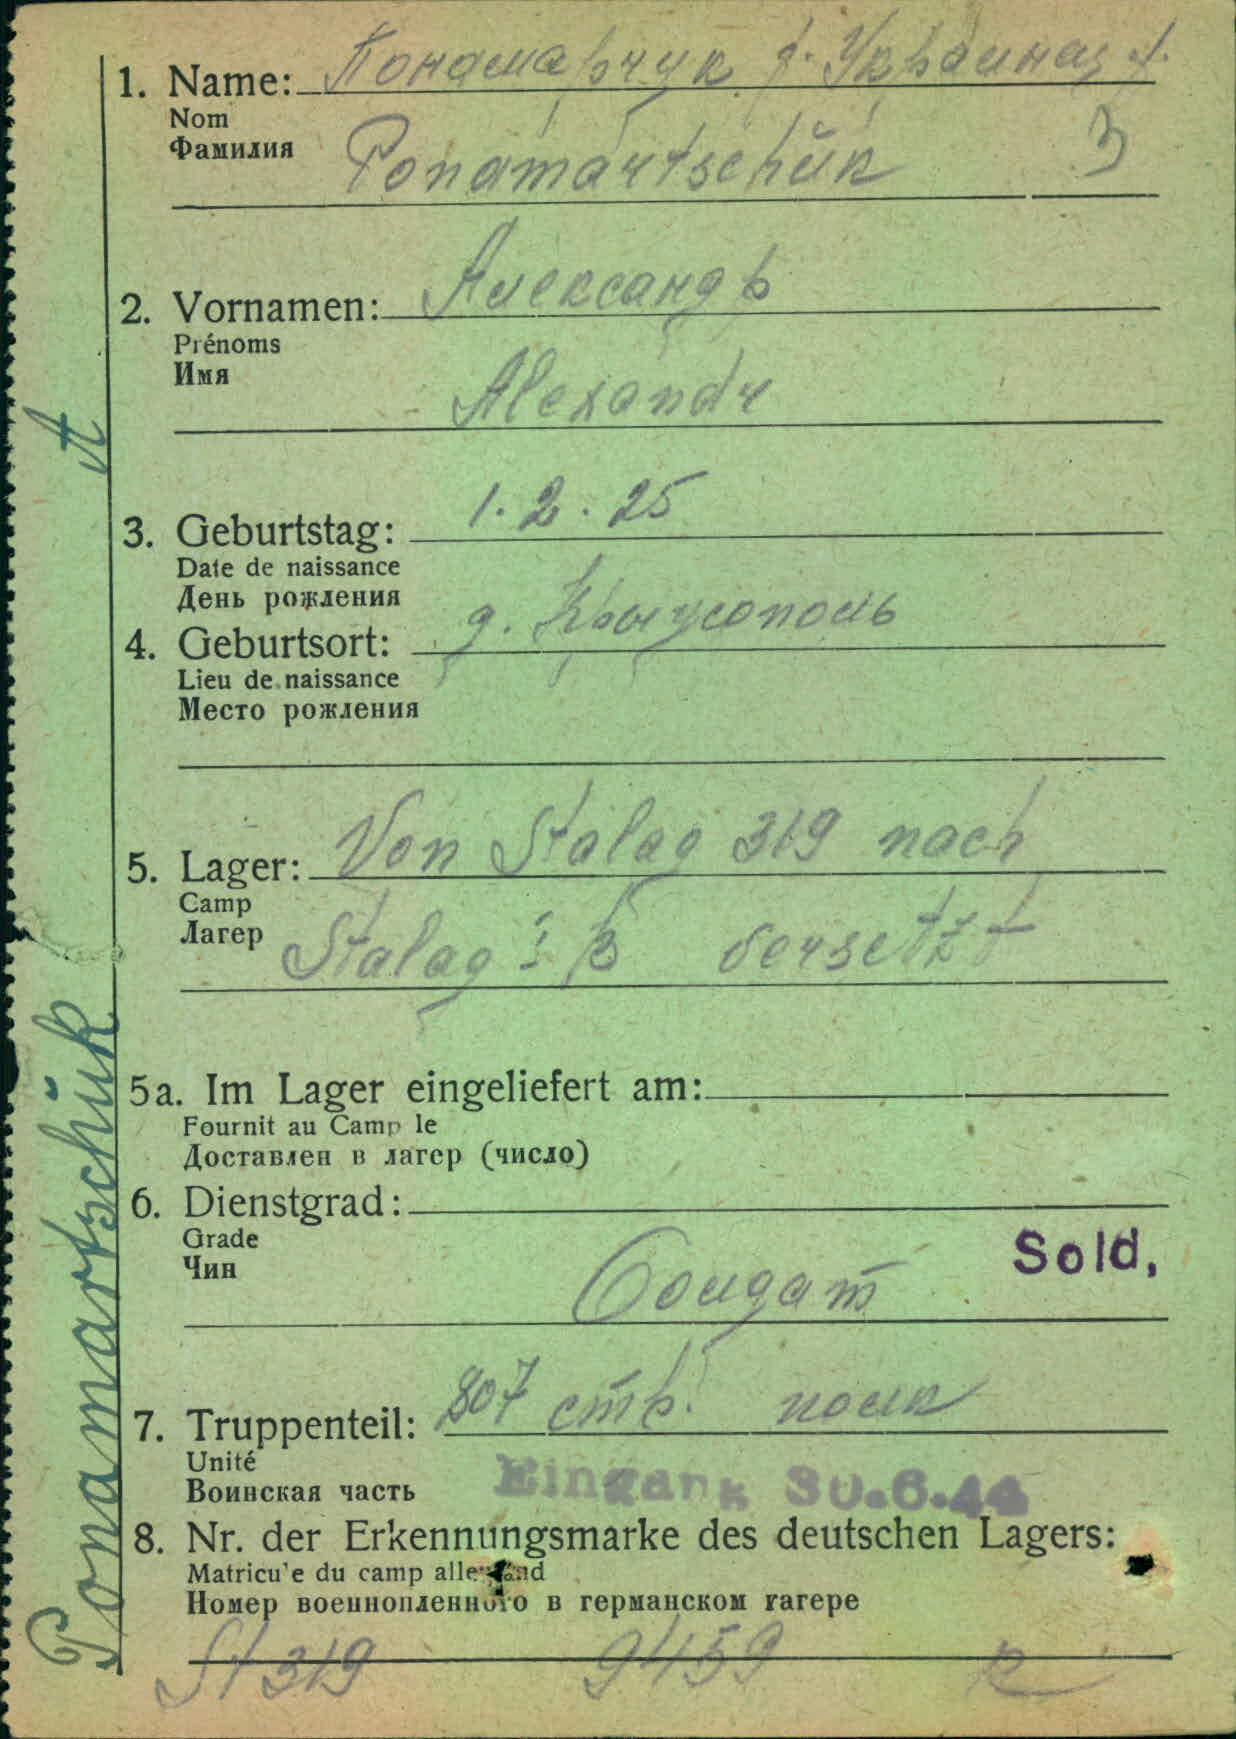 1. Name: Понамарчук д. Украинец А.
Nom
Фамилия Ponamartschŭk 3
2. Vornamen: Александр
Prénoms
Имя
Alexandr
A
3. Geburtstag: 1. 2. 25
Date de naissance
День рождения
4. Geburtsort: д. Крыжополь
Lieu de naissance
Место рождения
5. Lager: Von Stalag 319 nach
Camp
Лагер Stalag I B versetzt
5a. Im Lager eingeliefert am:
Fournit au Camp le
Доставлен в лагер (число)
6. Dienstgrad:
Grade
Чин Солдат Sold,
7. Truppenteil: 807 стр. полк
Unité
Воинская часть Eingang 30.6.44
8. Nr. der Erkennungsmarke des deutschen Lagers:
Matricu'e du camp allemand
Номер военнопленного в германском гагере
St 319 9459 R
Ponamartschŭk